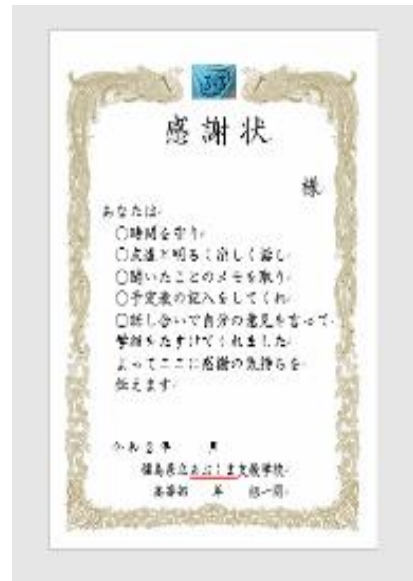 感謝状
様
あなたは
○時間を守り
○友達と明るく楽しく話し
○聞いたことのメモを取り
○予定表の記入をしてくれ
○話し合いで自分の意見を言って
学級をたすけてくれました
よってここに感謝の気持ちを
伝えます
令和2年 月
福島県立あぶくま支援学校
高等部 年 組一同